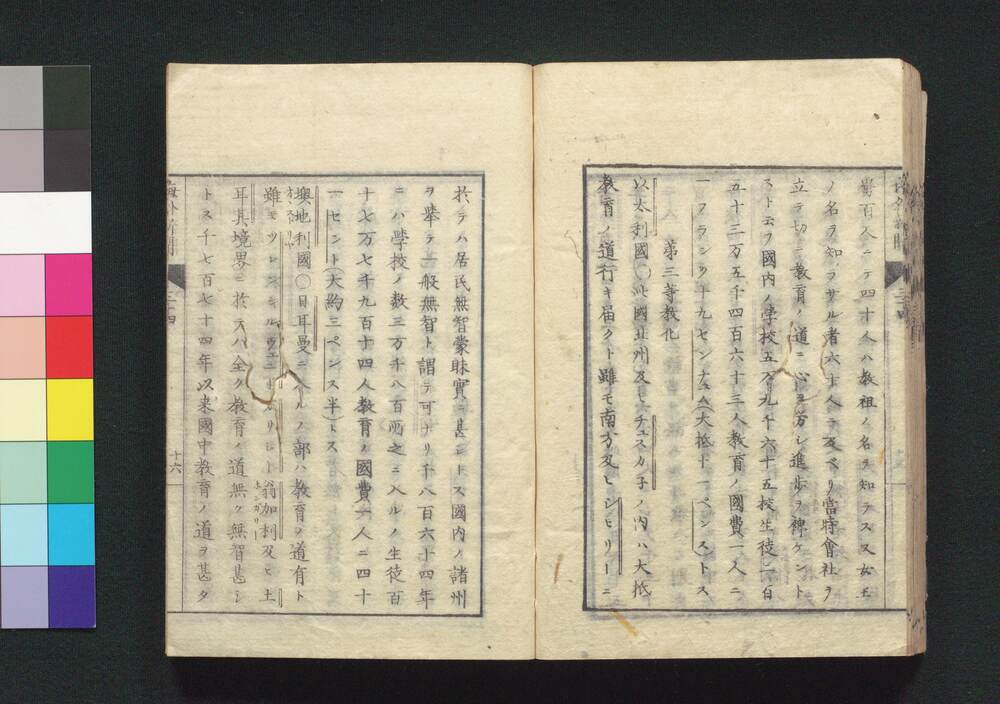 嘗百人ニケ四十人ハ教祖ノ名ヲ知ラス又女モ
ノ名ヲ知ラサル者六十人ニ及ベリ當時會社ヲ
立テ切ニ教育ノ道ニ心ヲ労シ進歩ヲ裨ケント
スト云フ國内ノ学校五万九千六十五校生徒一百
五十三万五千四百六十三人教育ノ國費一人ニ
一フランク十九センチム(大抵十一ペンス)トス
第三等教化
以太利國〇此國北州及ヒチュスカ子ノ内ハ大抵
教育ノ道行キ届クト雖モ南方及ヒシセリーニ
於テハ居民無智蒙昧實ニ甚シトス國内ノ諸州
ヲ挙テ一般無智ト謂テ可ナリ千八百六十四年
ニハ學校ノ数三万千八百所之ニ入ルノ生徒百
十七万七千九百十四人教育ノ國費一人ニ四十
一セント(大約三ペンス半)トス
墺地利國〇日耳曼ニ入ルノ部ハ教育ノ道有ト
雖モ
翁加利及ヒ土
ホンガリー
耳其境界ニ於テハ全ク教育ノ道無ク無智甚シ
トス千七百七十四年以来國中教育ノ道ヲ甚タ
十六